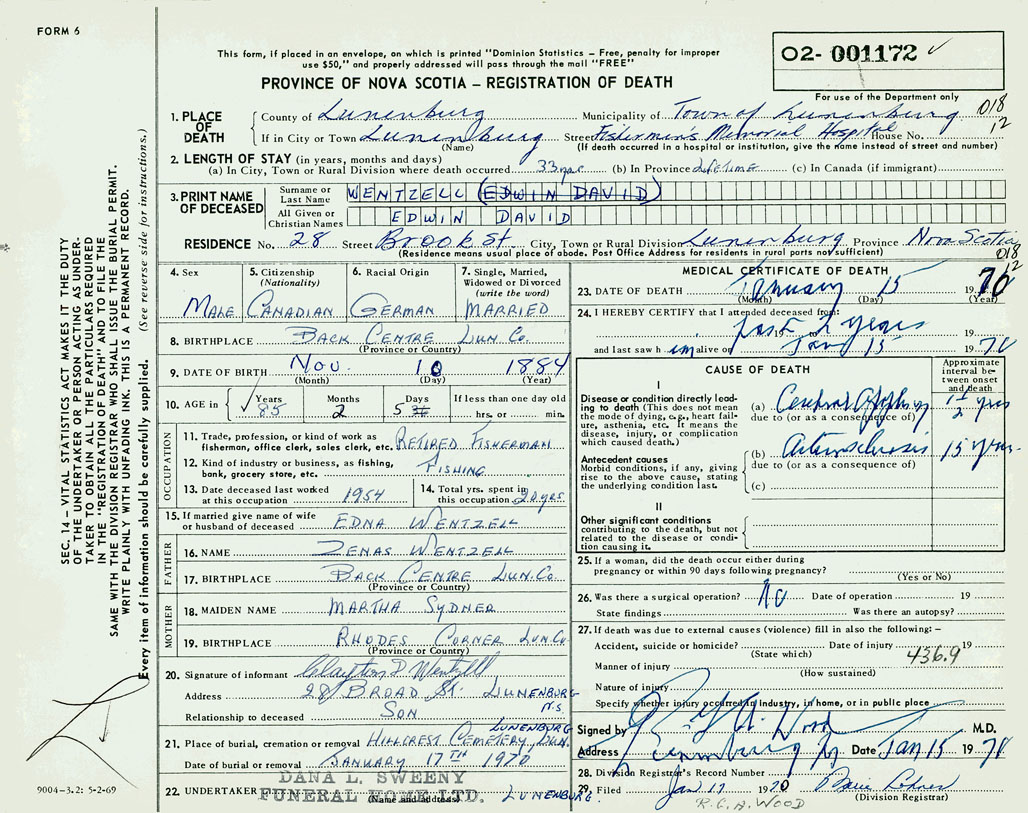 FORM 6
This form, if placed in an envelope, on which is printed "Dominion Statistics – Free, penalty for improper
use $50," and properly addressed will pass through the mail "FREE"
PROVINCE OF NOVA SCOTIA – REGISTRATION OF DEATH
O2- 001172
For use of the Department only
018
12
1. PLACE OF DEATH
County of Lunenburg Municipality of Town of Lunenburg
If in City or Town Lunenburg Street Fishermen's Memorial Hospital House No.
(Name) (If death occurred in a hospital or institution, give the name instead of street and number)
2. LENGTH OF STAY (in years, months and days)
(a) In City, Town or Rural Division where death occurred 33 yrs (b) In Province LIFETIME (c) In Canada (if immigrant)
3. PRINT NAME OF DECEASED
Surname or Last Name WENTZELL (EDWIN DAVID)
All Given or Christian Names EDWIN DAVID
RESIDENCE No. 28 Street Brook St. City, Town or Rural Division Lunenburg Province Nova Scotia
(Residence means usual place of abode. Post Office Address for residents in rural parts not sufficient)
018
12
4. Sex MALE
5. Citizenship (Nationality) CANADIAN
6. Racial Origin GERMAN
7. Single, Married, Widowed or Divorced (write the word) MARRIED
8. BIRTHPLACE BACK CENTRE LUN. CO.
(Province or Country)
9. DATE OF BIRTH Nov. 10 1884
(Month) (Day) (Year)
10. AGE in Years 85 Months 2 Days 5 If less than one day old hrs. or min.
OCCUPATION
11. Trade, profession, or kind of work as fisherman, office clerk, sales clerk, etc. RETIRED FISHERMAN
12. Kind of industry or business, as fishing, bank, grocery store, etc. FISHING
13. Date deceased last worked at this occupation 1954
14. Total yrs. spent in this occupation 20 yrs.
15. If married give name of wife or husband of deceased EDNA WENTZELL
FATHER
16. NAME ZENAS WENTZELL
17. BIRTHPLACE BACK CENTRE LUN. CO.
(Province or Country)
MOTHER
18. MAIDEN NAME MARTHA SYDNER
19. BIRTHPLACE RHODES CORNER LUN. CO.
(Province or Country)
20. Signature of informant Clayton D Wentzell
Address 28 BROAD ST. LUNENBURG N.S.
Relationship to deceased SON
21. Place of burial, cremation or removal HILLCREST CEMETERY, LUNENBURG LUN.
Date of burial or removal JANUARY 17TH 1970
22. UNDERTAKER DANA L. SWEENY
FUNERAL HOME LTD. LUNENBURG.
(Name and address)
MEDICAL CERTIFICATE OF DEATH
23. DATE OF DEATH January 15 1970
(Month) (Day) (Year)
24. I HEREBY CERTIFY that I attended deceased from:
past 2 years 19
and last saw him alive on Jan 15 1970
CAUSE OF DEATH
Approximate interval between onset and death
I
Disease or condition directly leading to death (This does not mean the mode of dying, e.g., heart failure, asthenia, etc. It means the disease, injury, or complication which caused death.)
(a)
due to (or as a consequence of)
2 yrs
Antecedent causes
Morbid conditions, if any, giving rise to the above cause, stating the underlying condition last.
(b) Arteriosclerosis 15 years
due to (or as a consequence of)
(c)
II
Other significant conditions
contributing to the death, but not related to the disease or condition causing it.
25. If a woman, did the death occur either during pregnancy or within 90 days following pregnancy?
(Yes or No)
26. Was there a surgical operation? No Date of operation 19
State findings Was there an autopsy?
27. If death was due to external causes (violence) fill in also the following: –
Accident, suicide or homicide? Date of injury 19
(State which)
436.9
Manner of injury
(How sustained)
Nature of injury
Specify whether injury occurred in industry, in home, or in public place
Signed by R G A Wood M.D.
Address Lunenburg NS Date Jan 15 1970
28. Division Registrar's Record Number
29. Filed Jan 17 1970
(Division Registrar)
R.G.A. WOOD
SEC. 14 – VITAL STATISTICS ACT MAKES IT THE DUTY
OF THE UNDERTAKER OR PERSON ACTING AS UNDER-
TAKER TO OBTAIN ALL THE PARTICULARS REQUIRED
IN THE "REGISTRATION OF DEATH" AND TO FILE THE
SAME WITH THE DIVISION REGISTRAR WHO SHALL ISSUE THE BURIAL PERMIT.
WRITE PLAINLY WITH UNFADING INK. THIS IS A PERMANENT RECORD.
Every item of information should be carefully supplied. (See reverse side for instructions.)
9004-3.2: 5-2-69